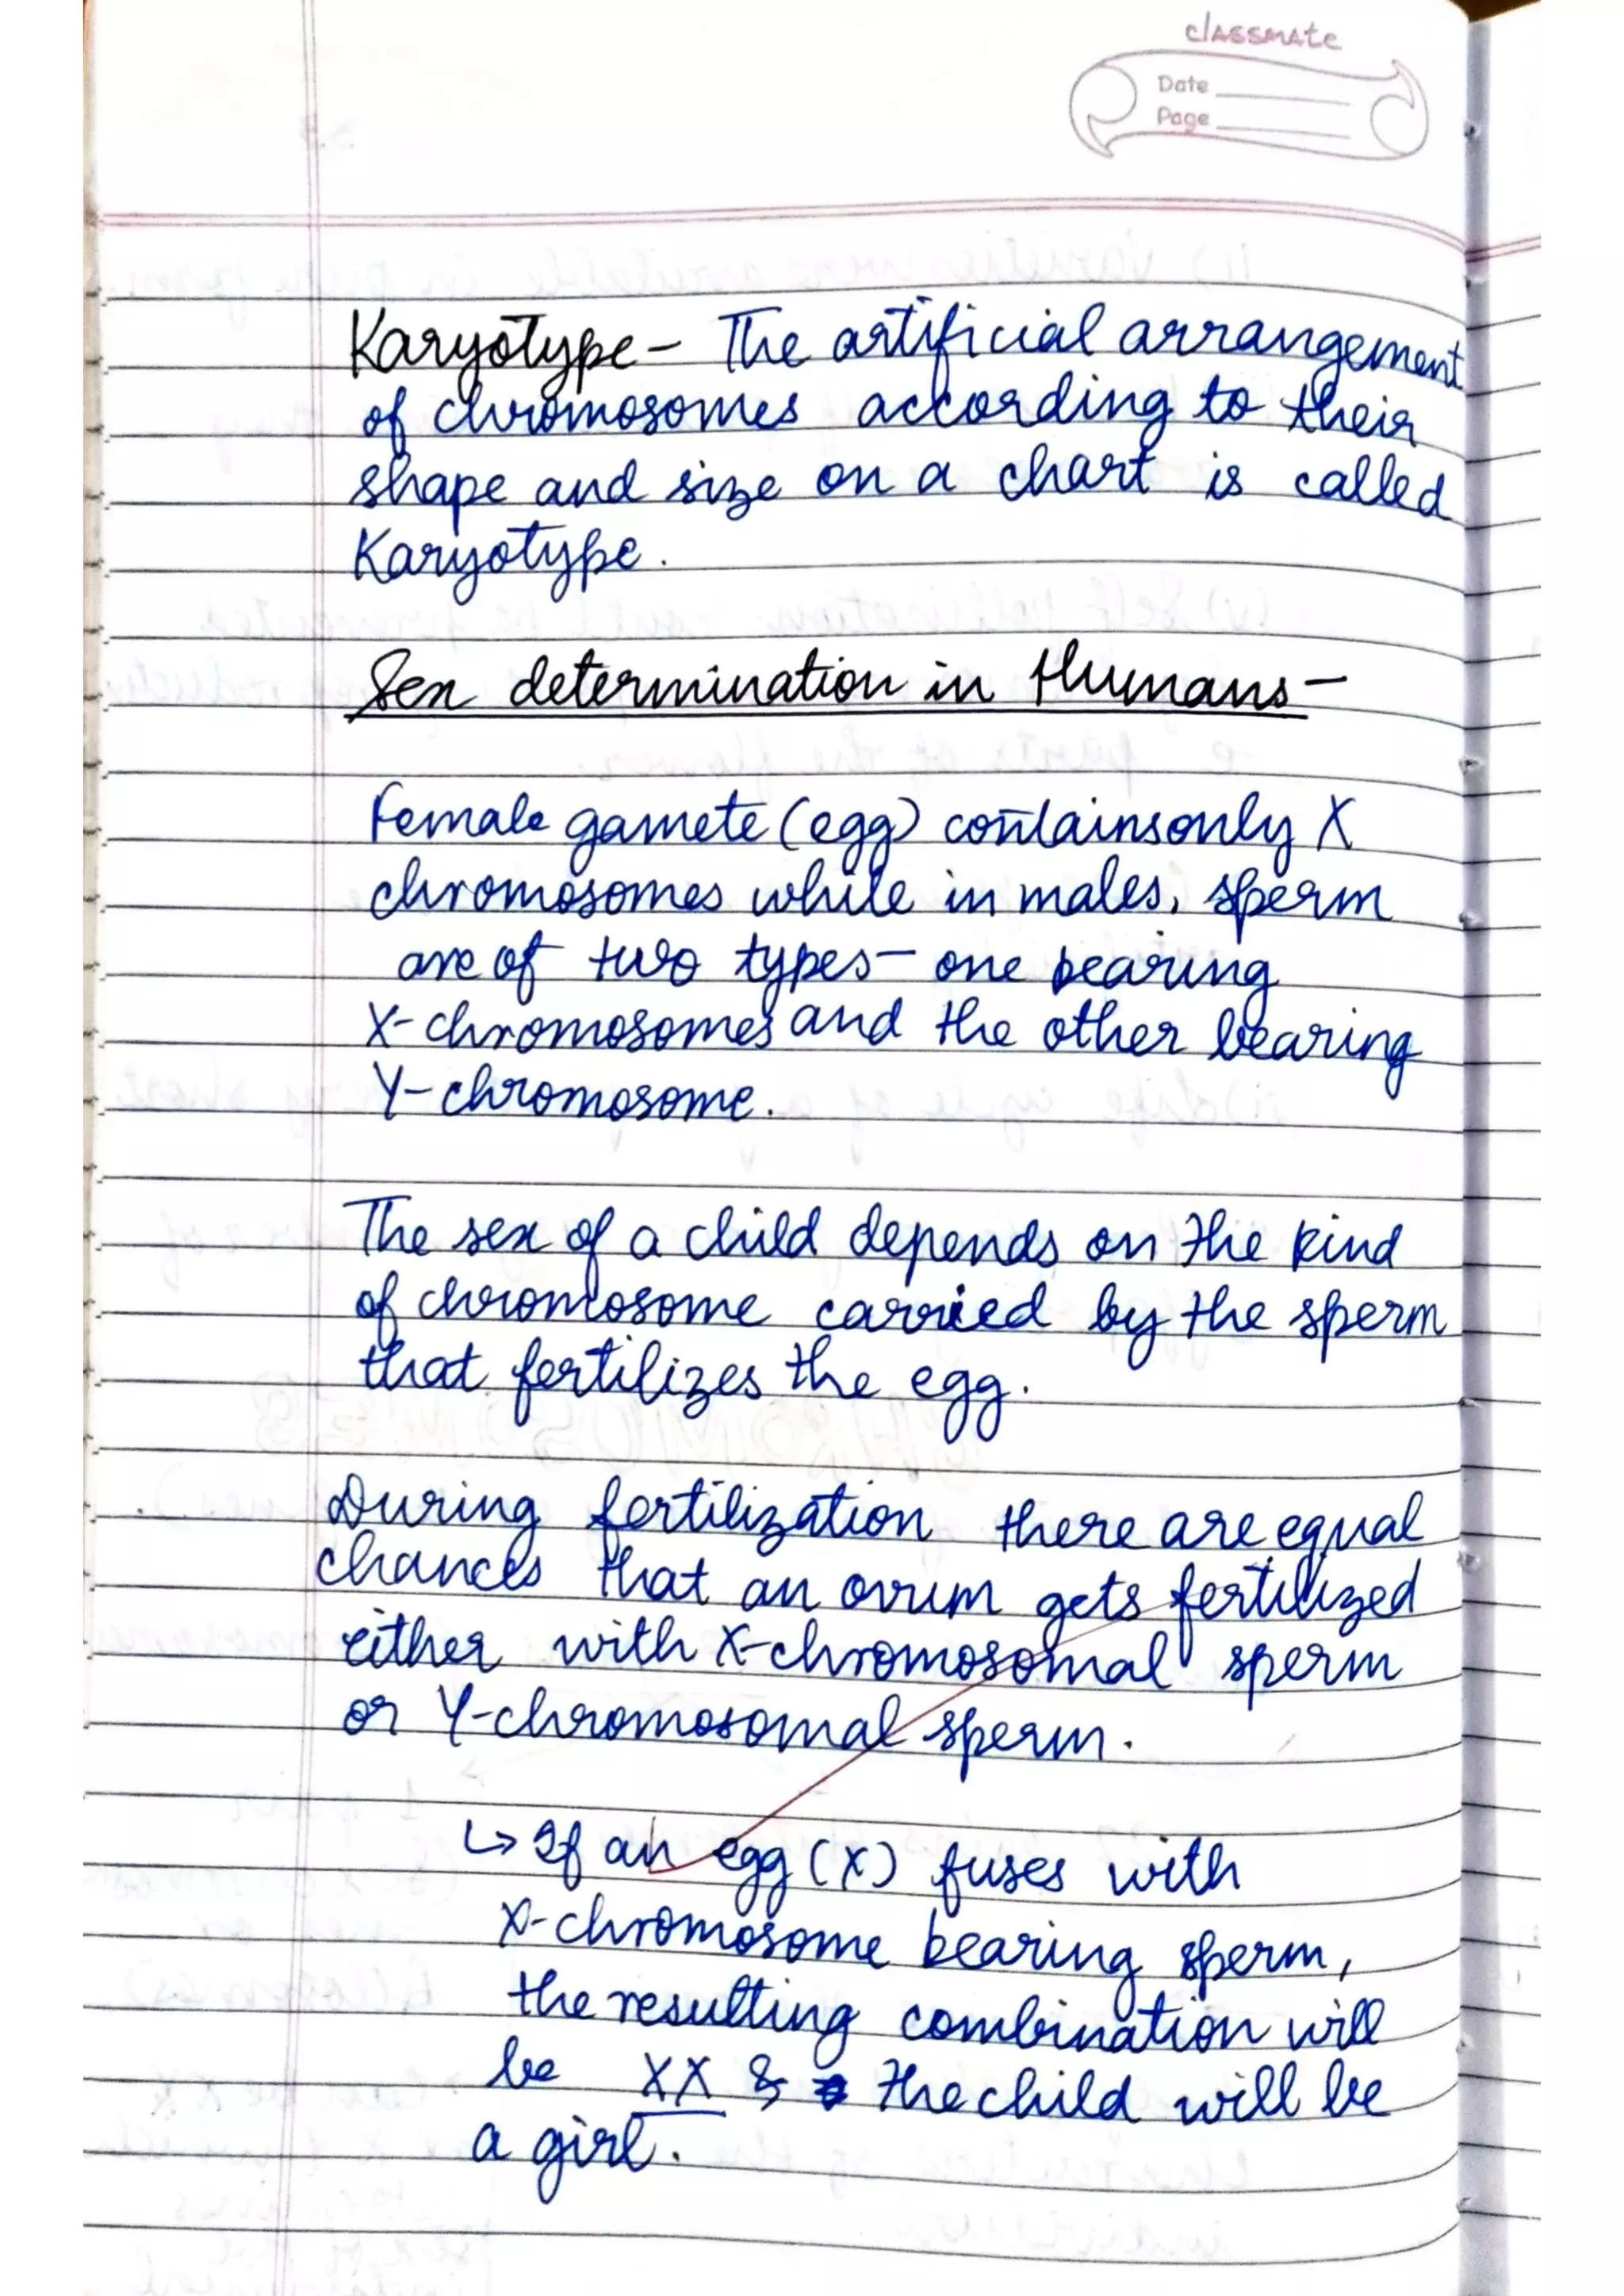 classmate
Date
Page
Karyotype - The artificial arrangement
of chromosomes according to their
shape and size on a chart is called
Karyotype.
Sex determination in Humans -
Female gamete (egg) contains only X
chromosomes while in males, sperm
are of two types - one bearing
X-chromosomes and the other bearing
Y-chromosome.
The sex of a child depends on the kind
of chromosome carried by the sperm
that fertilizes the egg.
During fertilization there are equal
chances that an ovum gets fertilized
either with X-chromosomal sperm
or Y-chromosomal sperm.
↳ If an egg (X) fuses with
X-chromosome bearing sperm,
the resulting combination will
be XX & the child will be
a girl.